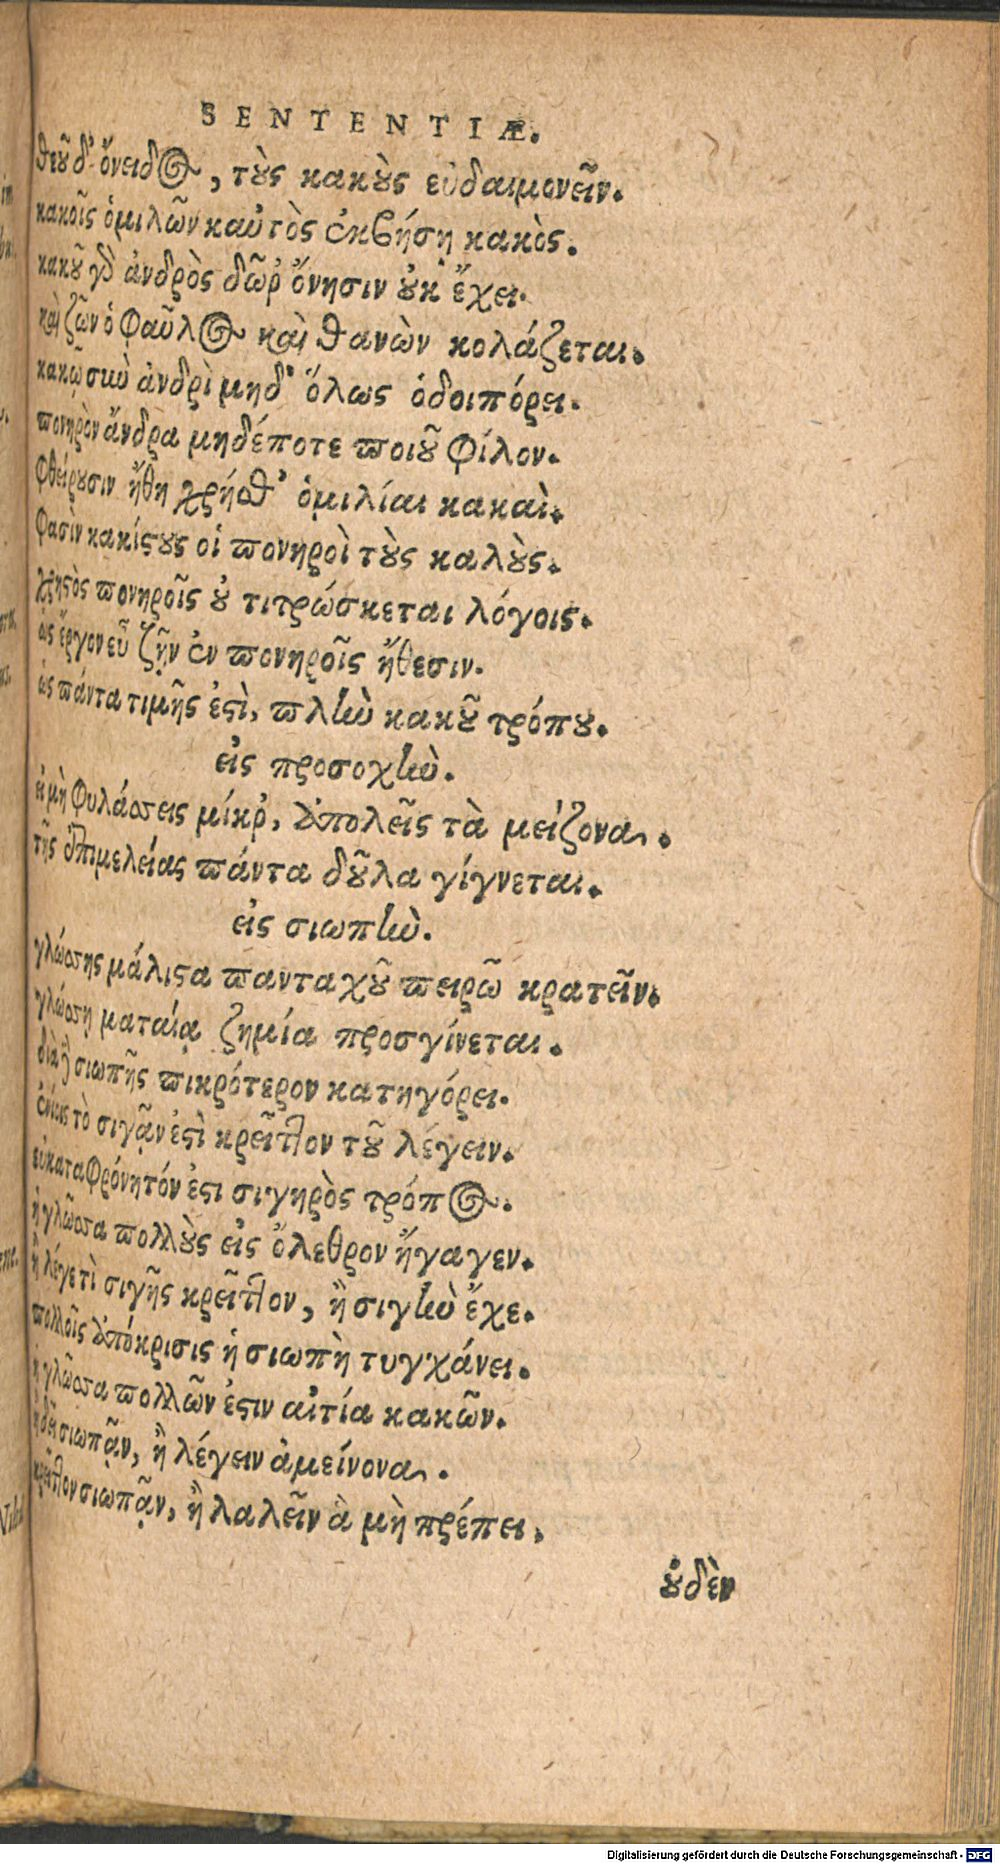 SENTENTIÆ.
θεοῦ δ' ὄνειδος, τοὺς κακοὺς εὐδαιμονεῖν.
κακοῖς ὁμιλῶν καὐτὸς ἐκβήσῃ κακὸς.
κακοῦ γὰρ ἀνδρὸς δῶρ' ὄνησιν οὐκ ἔχει.
καὶ ζῶν ὁ φαῦλος καὶ θανὼν κολάζεται.
κακῷ σὺν ἀνδρὶ μηδ' ὅλως ὁδοιπόρει.
πονηρὸν ἄνδρα μηδέποτε ποιοῦ φίλον.
φθείρουσιν ἤθη χρήσθ' ὁμιλίαι κακαὶ.
φασὶν κακίστους οἱ πονηροὶ τοὺς καλοὺς.
χρηστὸς πονηροῖς οὐ τιτρώσκεται λόγοις.
ὡς ἔργον εὖ ζῆν ἐν πονηροῖς ἤθεσιν.
ὡς πάντα τιμῆς ἐστὶ, πλὴν κακοῦ τρόπου.
εἰς προσοχὴν.
εἰ μὴ φυλάσσεις μίκρ', ἀπολεῖς τὰ μείζονα.
τῆς ἐπιμελείας πάντα δοῦλα γίγνεται.
εἰς σιωπὴν.
γλώσσης μάλιστα πανταχοῦ πειρῶ κρατεῖν.
γλώσσῃ ματαίᾳ ζημία προσγίνεται.
διὰ σιωπῆς πικρότερον κατηγόρει.
ἐνίοις τὸ σιγᾷν ἐστὶ κρεῖττον τοῦ λέγειν.
εὐκαταφρόνητόν ἐστι σιγηρὸς τρόπος.
ἡ γλῶσσα πολλοὺς εἰς ὄλεθρον ἤγαγεν.
ἢ λέγε τὶ σιγῆς κρεῖττον, ἢ σιγὴν ἔχε.
πολλοῖς ἀπόκρισις ἡ σιωπὴ τυγχάνει.
ἡ γλῶσσα πολλῶν ἐστιν αἰτία κακῶν.
ἢ δεῖ σιωπᾷν, ἢ λέγειν ἀμείνονα.
κρεῖττον σιωπᾷν, ἢ λαλεῖν ἃ μὴ πρέπει.
οὐδὲν
Digitalisierung gefördert durch die Deutsche Forschungsgemeinschaft - DFG